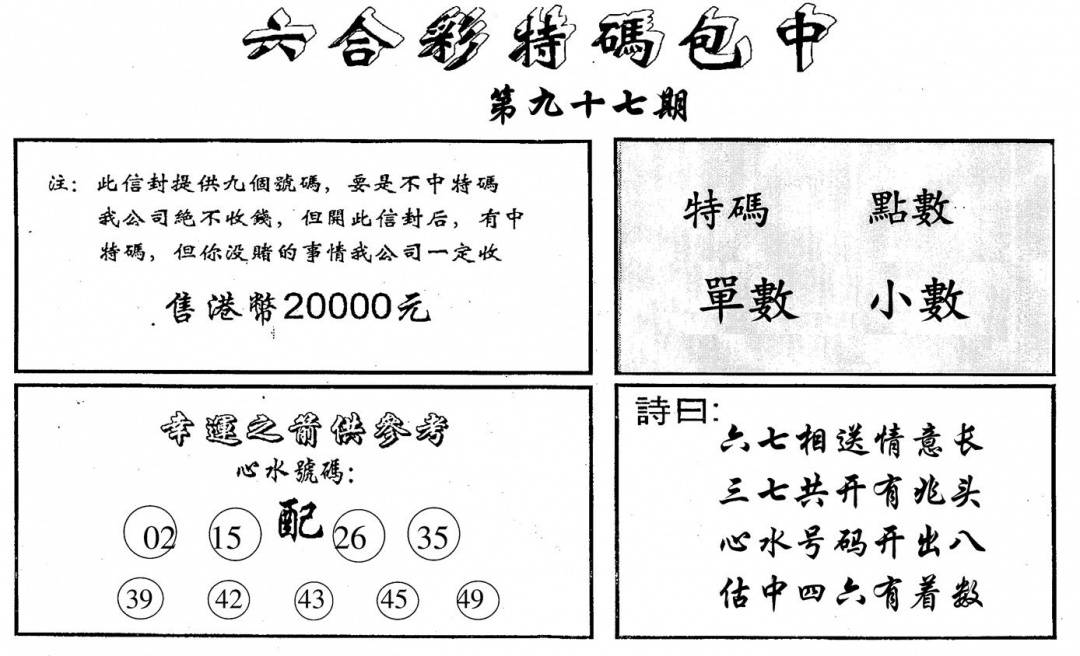 六合彩特碼包中
第九十七期
注：此信封提供九個號碼，要是不中特碼
我公司絕不收錢，但開此信封后，有中
特碼，但你没賭的事情我公司一定收
售港幣20000元
特碼 點數
單數 小數
幸運之箭供參考
心水號碼：
配
02 15 26 35
39 42 43 45 49
詩曰：
六七相送情意长
三七共开有兆头
心水号码开出八
估中四六有着数